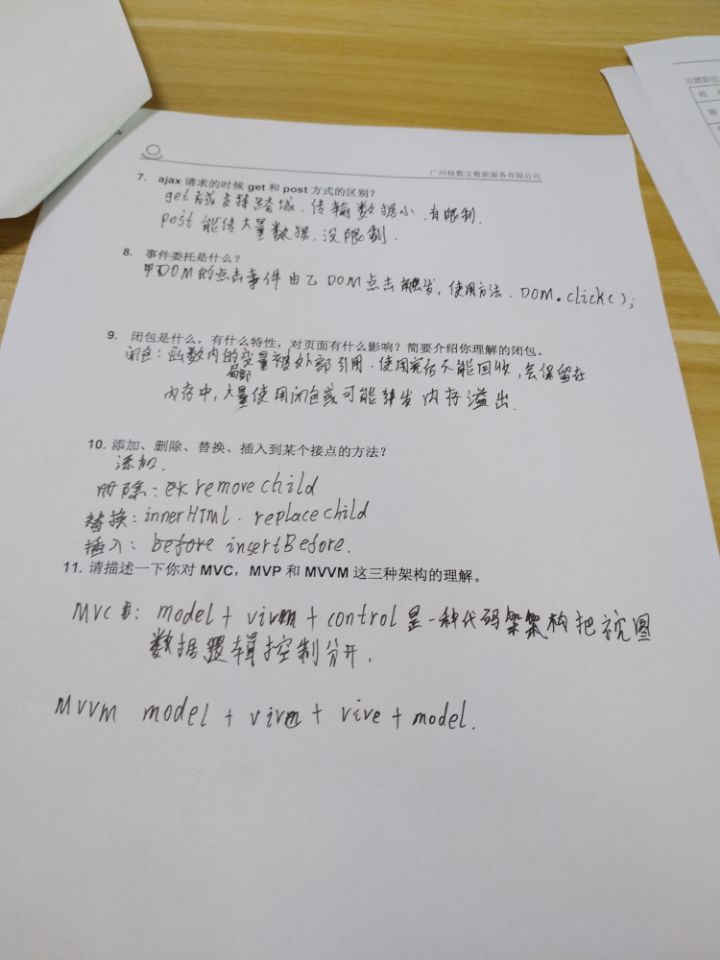 广州格数宝数据服务有限公司
7. ajax 请求的时候 get 和 post 方式的区别?
get 支持跨域. 传输数据小. 有限制.
post 能传大量数据. 没限制.
8. 事件委托是什么?
甲DOM的点击事件由乙DOM点击触发, 使用方法. DOM.click();
9. 闭包是什么,有什么特性,对页面有什么影响?简要介绍你理解的闭包。
闭包: 函数内的局部变量被外部引用. 使用完后不能回收, 会保留在
内存中, 大量使用闭包可能引发内存溢出.
10. 添加、删除、替换、插入到某个接点的方法?
添加.
删除: removechild
替换: innerHTML. replacechild
插入: before insertBefore.
11. 请描述一下你对 MVC,MVP 和 MVVM 这三种架构的理解。
MVC : model + + control 是一种代码架构把视图
数据逻辑控制分开.
MVVM model + + vive + model.